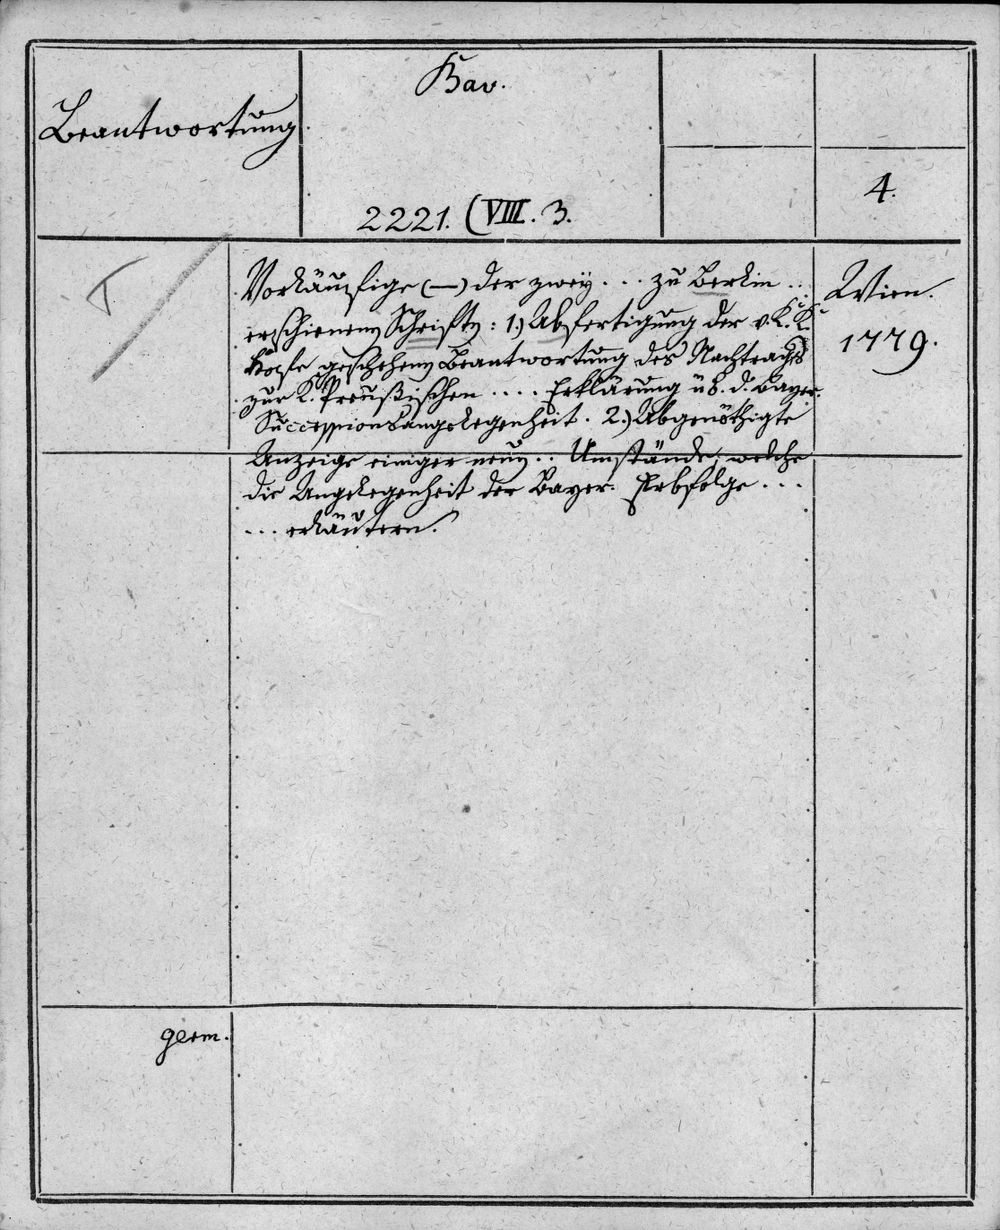 Beantwortung
Bav.
4.
2221. (VIII. 3.
Vorläufige (—) der zwey ... zu Berlin ...
erschienenen Schriften: 1.) Abfertigung der v. K. K.
Hofe geschehenen Beantwortung des Nachtrags
zur K. Preußischen .... Erklärung üb. d. Bayer.
Successionsangelegenheit. 2.) Abgenöthigte
Anzeige einiger neuen .. Umstände, welche
die Angelegenheit der Bayer. Erbfolge ...
... erläutern.
Wien.
1779.
germ.